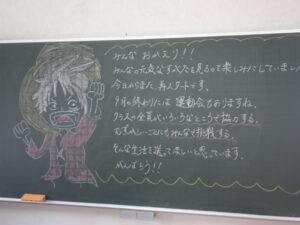 みんな おかえり!!
みんなの元気なすがたを見るので楽しみにしていまし
今日からまた 再スタートです。
9月の終わりには 運動会もありますね。
クラスの全員がいろいろなところで協力する。
むずかしいことにもみんなで挑戦する。
そんな生活を送ってほしいと思っています。
がんばろう!!